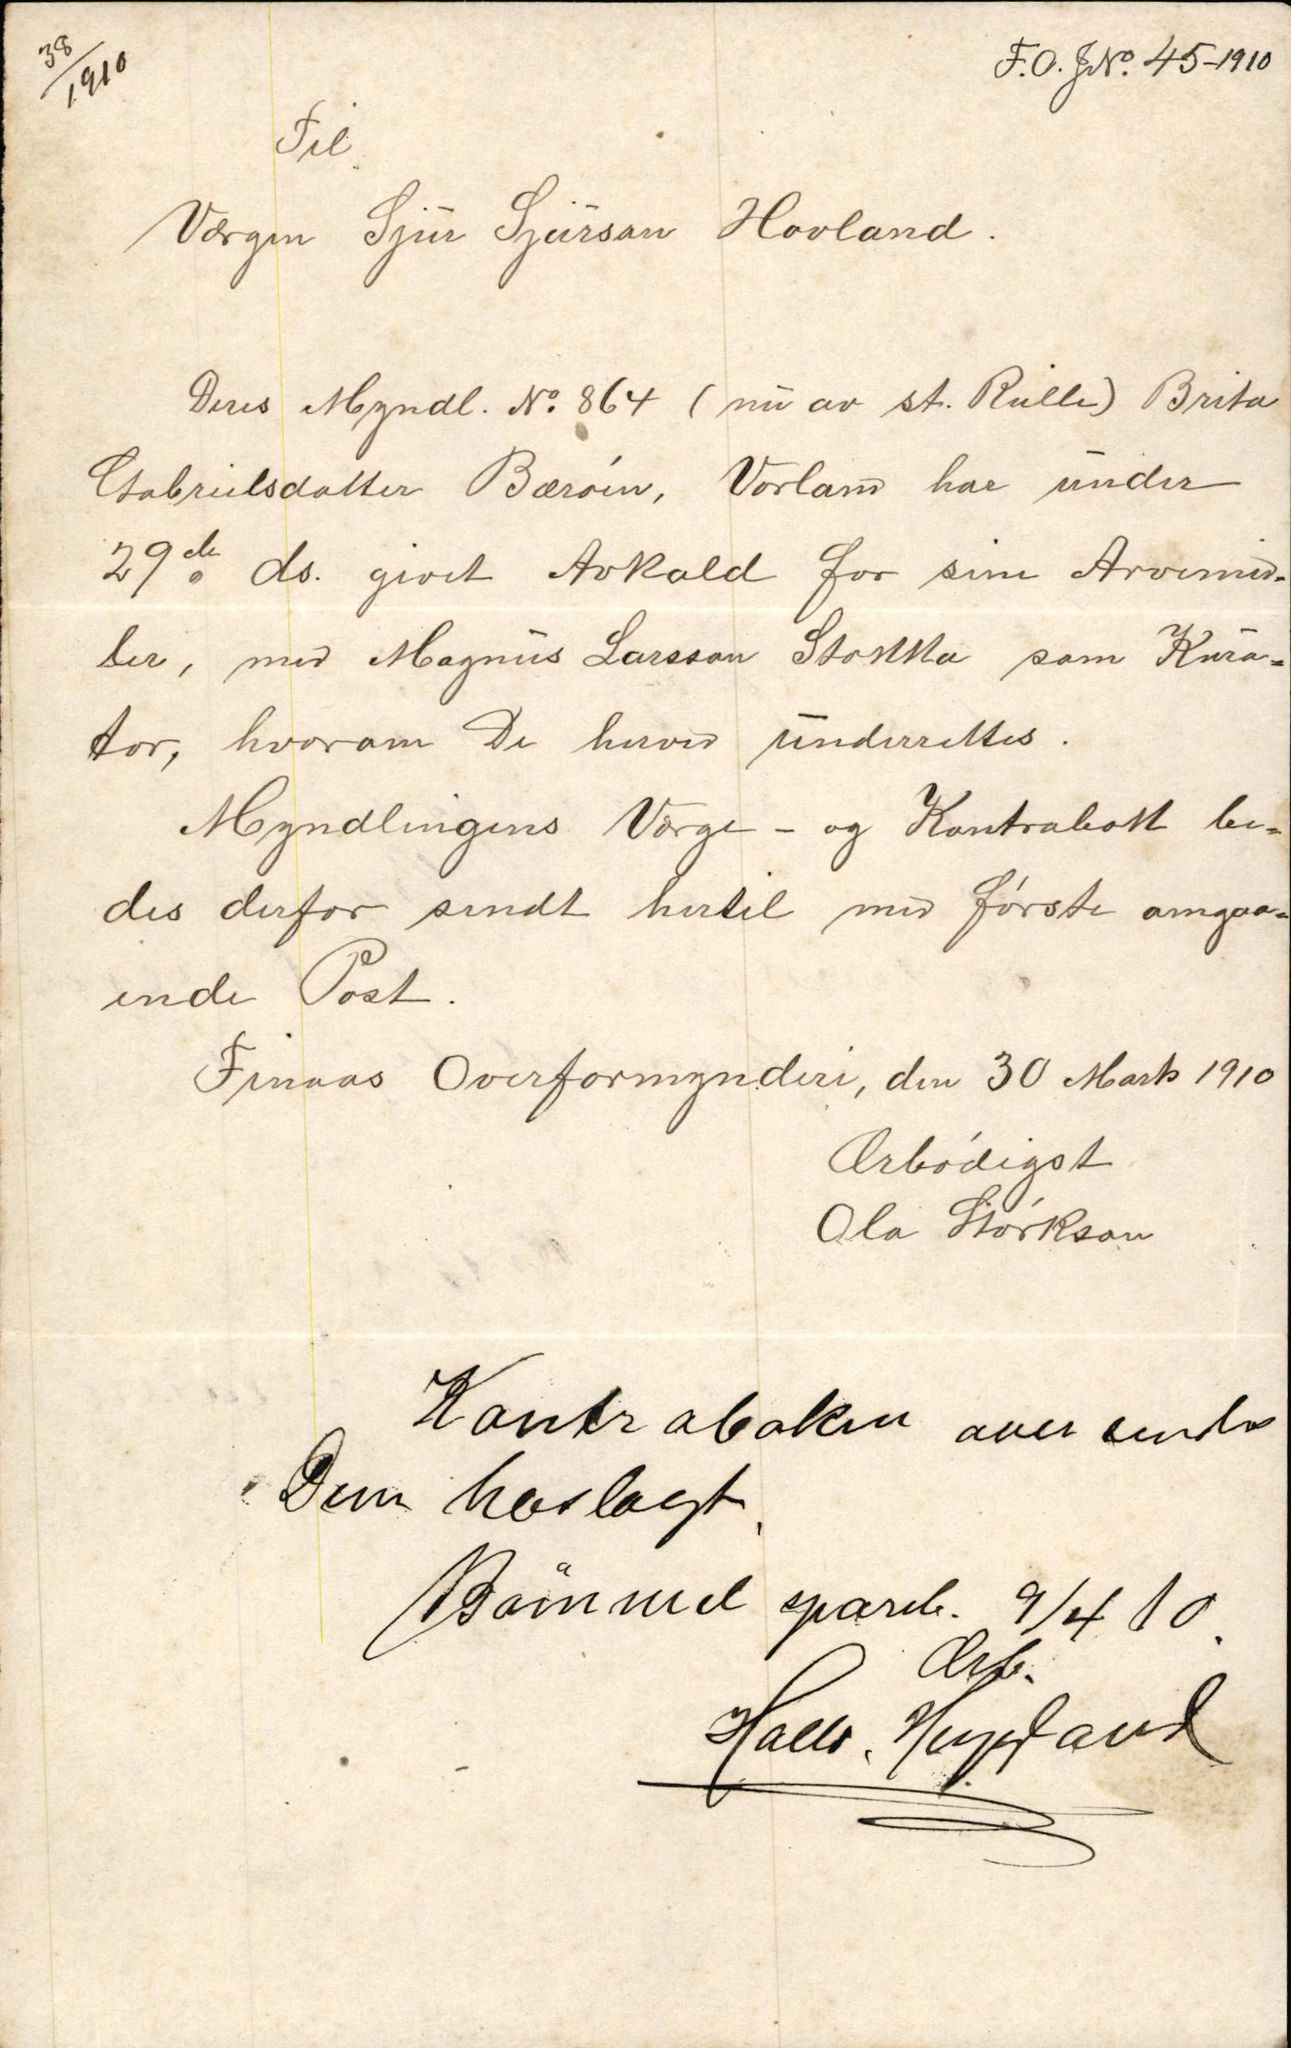 38/1910
F.O.J.No. 45-1910
Til
Vergen Sjur Sjursson Hovland.
Deres Myndl. No. 864 (nu av st. Rulle) Brita
Gabrielsdatter Bærøen, Vorland har under
29de ds. givet Avkald for sine Arvemid-
ler, med Magnus Larsson Stokka som Kura-
tor, hvorom De herved underrettes.
Myndlingens Verge- og Kontrabok be-
des derfor sendt hertil med første omgaa-
ende Post.
Finaas Overformynderi, den 30 Marts 1910
Ærbødigst
Ola Størkson
Kontraboken oversendes
Dem hoslagt.
Bömmel spareb. 9/4 10.
Ærb.